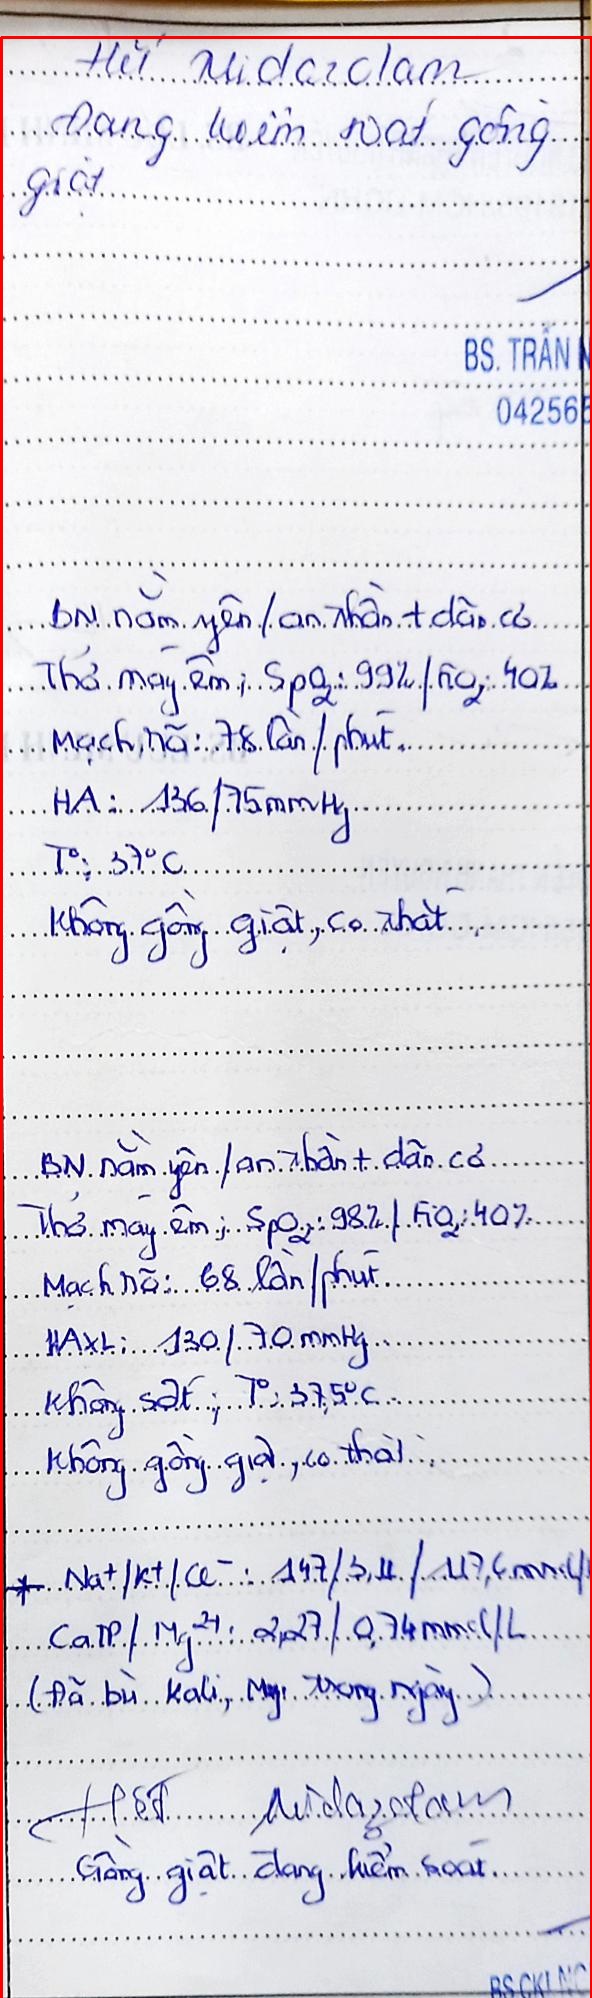 Hết Midazolam
Đang kiểm soát gồng
giật
BS. TRẦN
04256
BN nằm yên / an thần + dãn cơ
Thở máy êm; SpO2: 99% / FiO2: 40%
Mạch rõ: 78 lần / phút.
HA: 136/75mmHg
T°: 37°C
Không gồng giật, co thắt.
BN nằm yên / an thần + dãn cơ
Thở máy êm; SpO2: 98% / FiO2: 40%
Mạch rõ: 68 lần / phút
HAXL: 130/70 mmHg
Không sốt; T°: 37,5°C
Không gồng giật, co thắt.
* Na+/K+/Cl-: 147/3,11/117,6 mmol/
CaTP/Mg2+: 2,27/0,74 mmol/L
(Đã bù Kali, Mg. trong ngày)
Hết Midazolam
Gồng giật đang kiểm soát
BS.CKI.